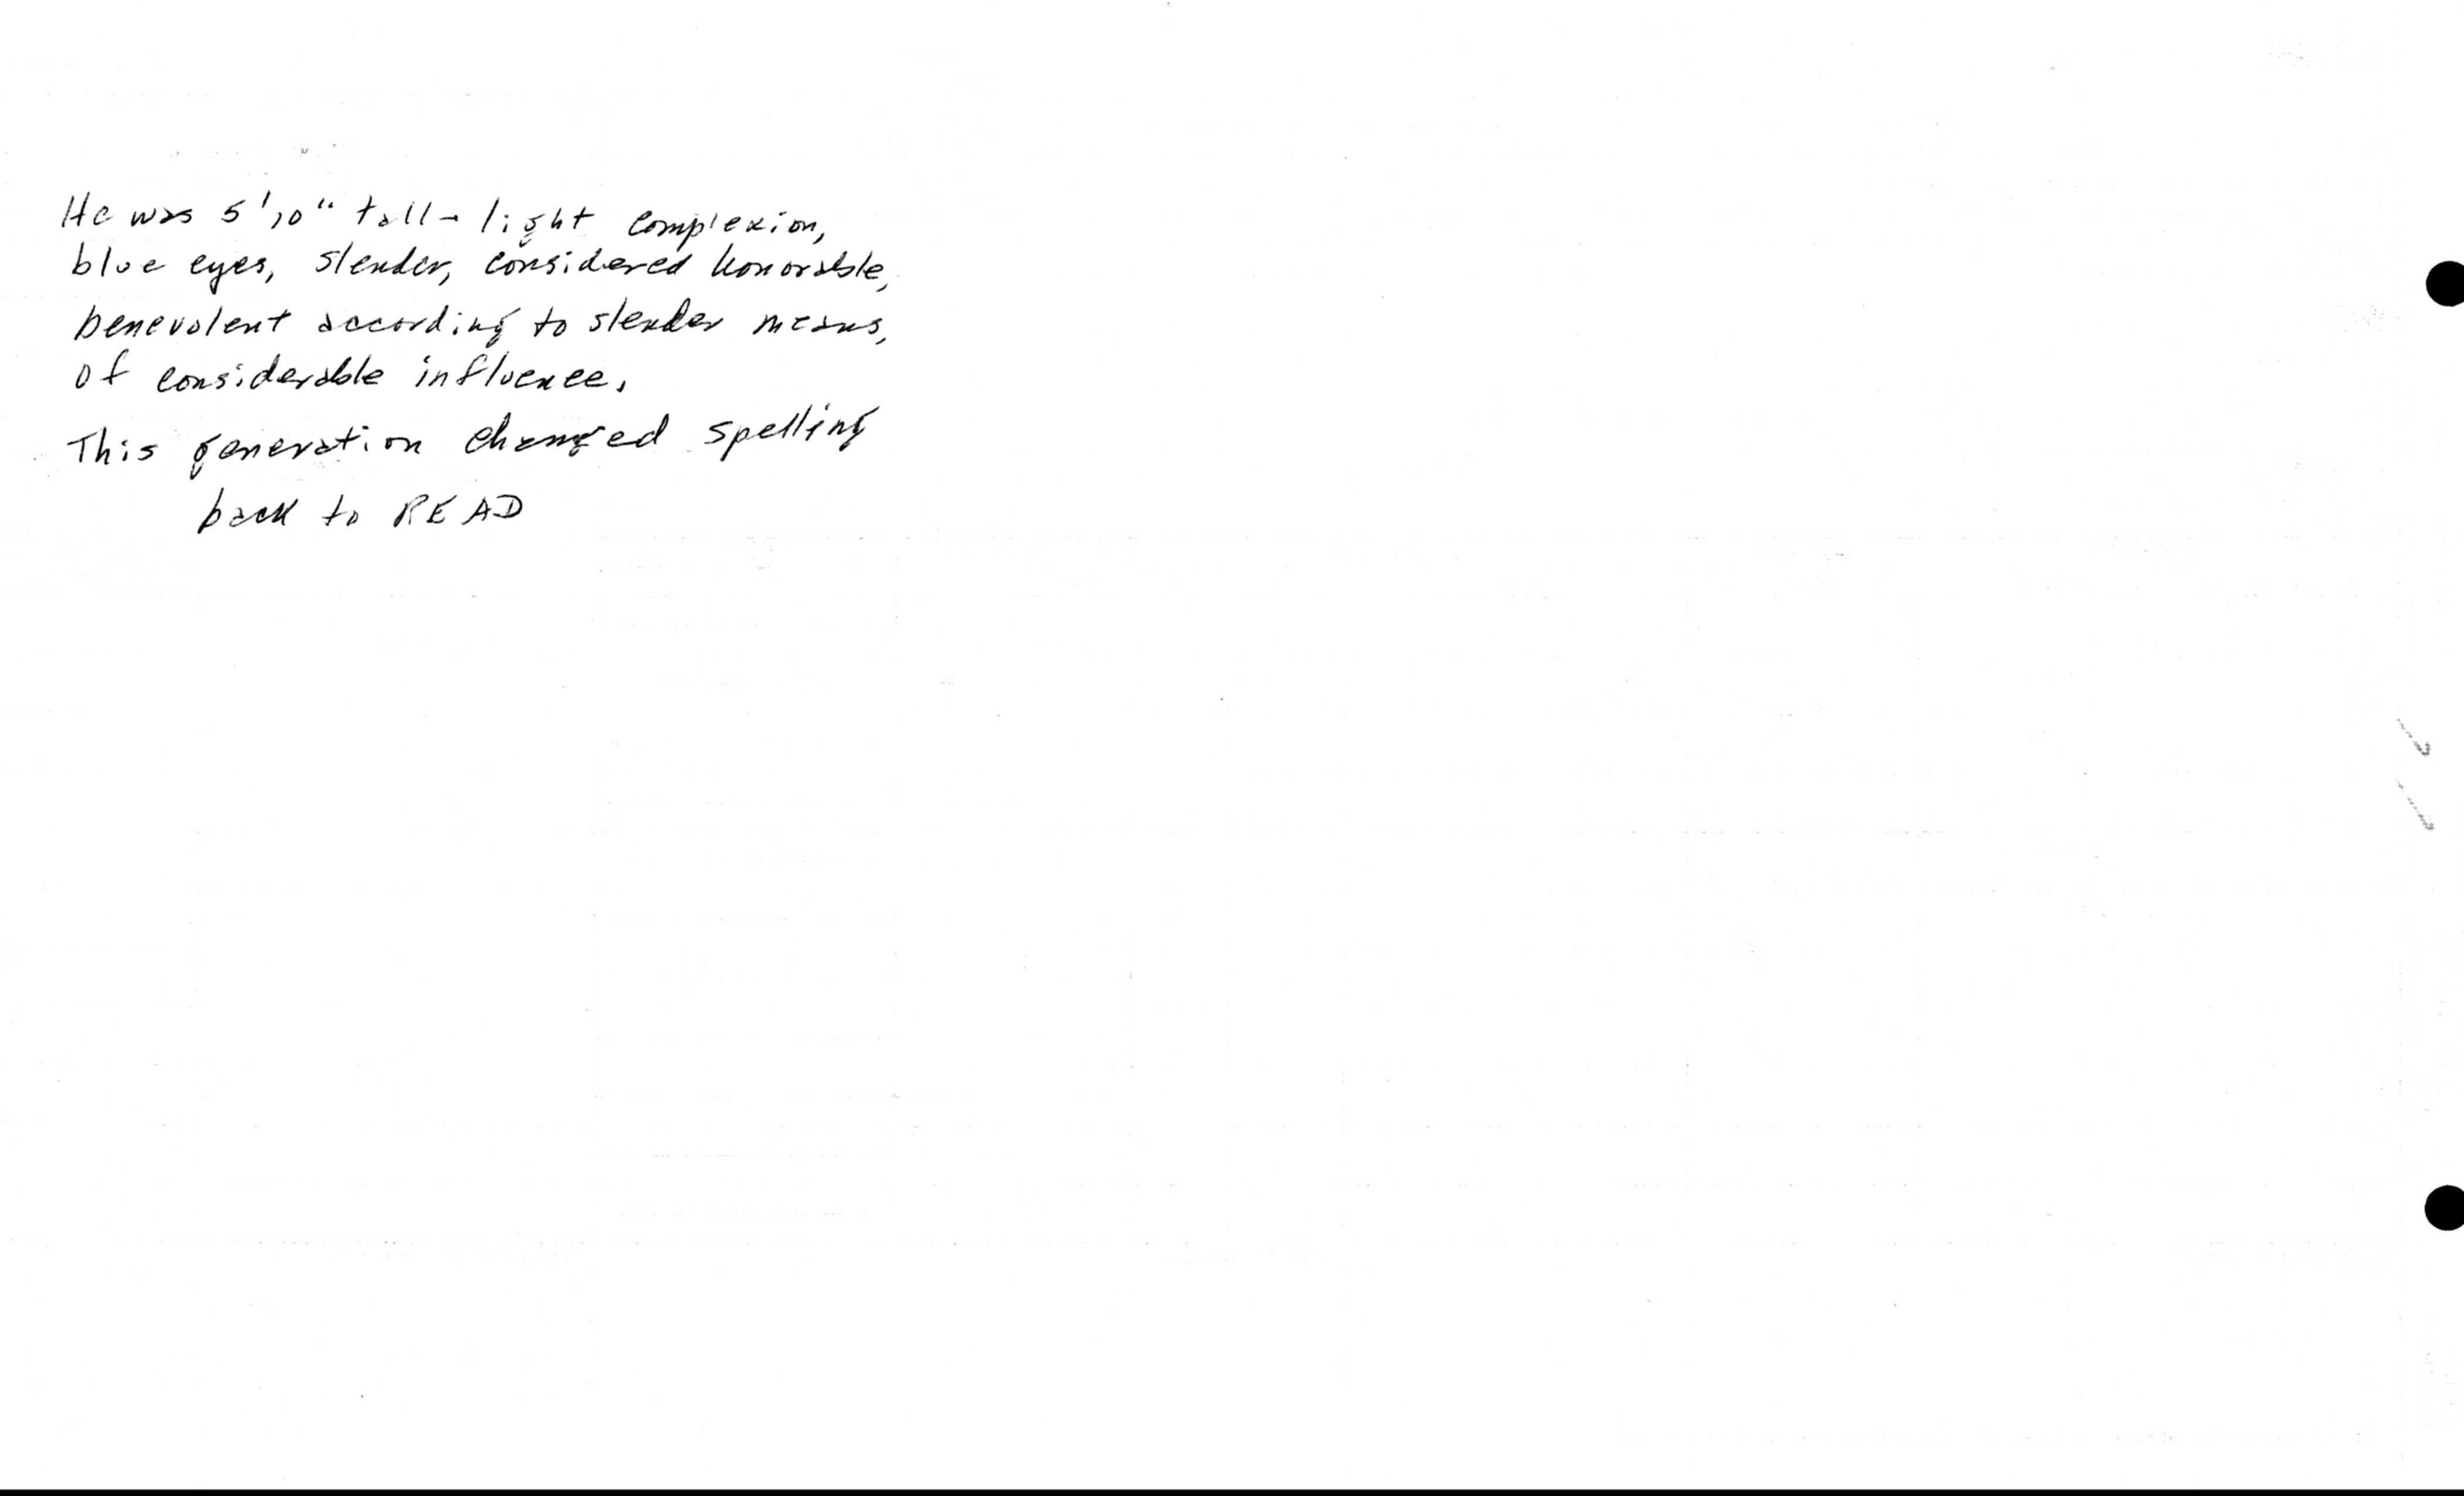 He was 5'10" tall - light complexion,
blue eyes, slender, considered honorable,
benevolent according to slender means,
of considerable influence.
This generation changed spelling
back to READ